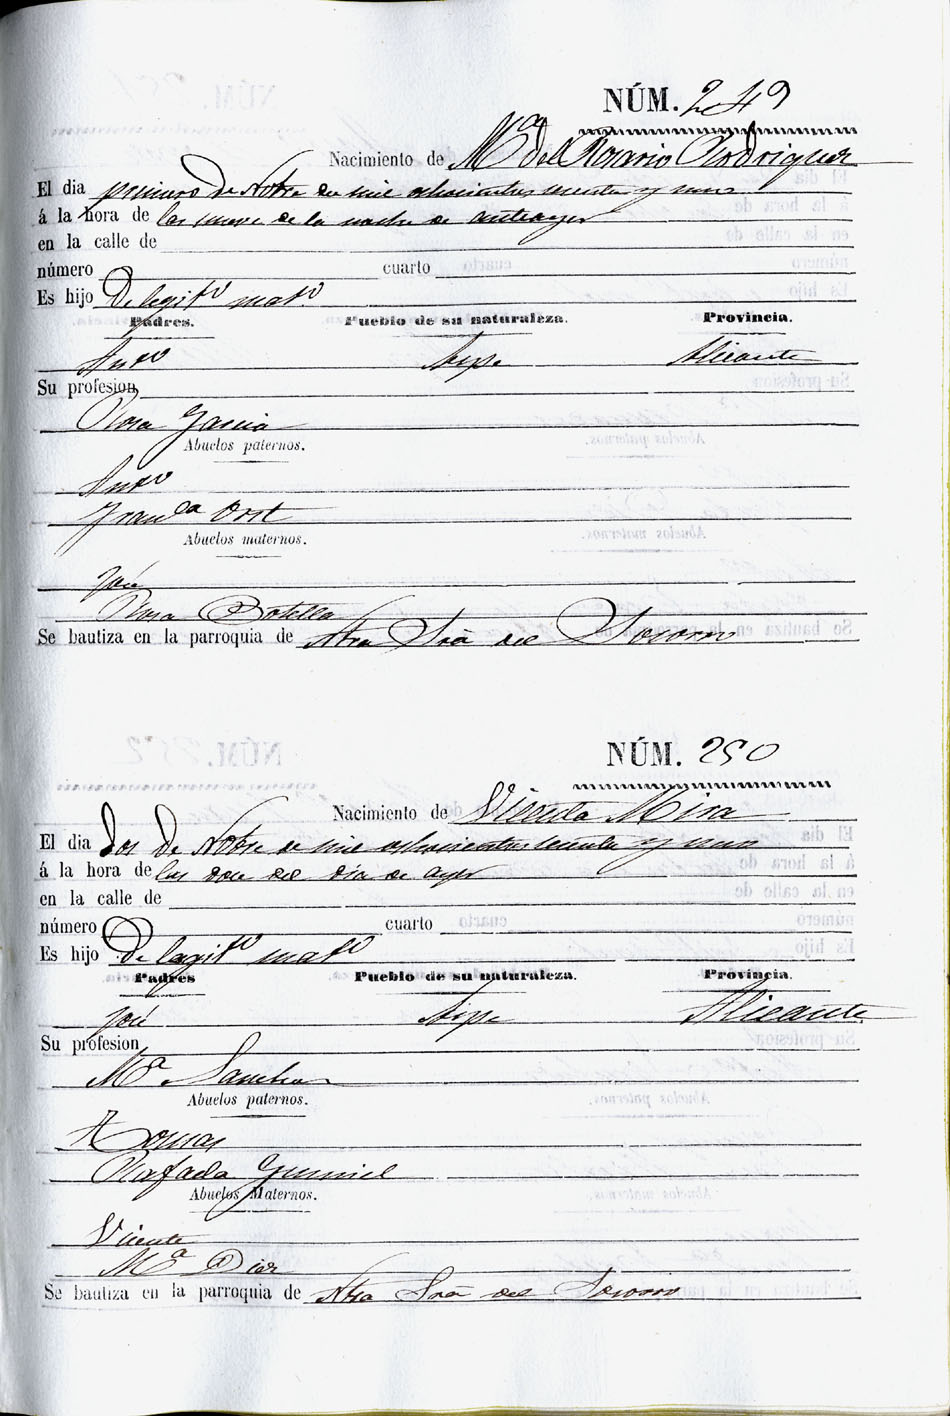 NÚM. 249
Nacimiento de Mª del Rosario Rodriguez
El dia primero de Nobre de mil ochocientos sesenta y uno
á la hora de las nueve de la noche de anteayer
en la calle de
número cuarto
Es hijo De legitº matº
Padres. Pueblo de su naturaleza. Provincia.
Antº Aspe Alicante
Su profesion
Rosa Garcia
Abuelos paternos.
Antº
Francᵃ Ort
Abuelos maternos.
José
Rosa Botella
Se bautiza en la parroquia de Ntra Srã del Socorro
NÚM. 250
Nacimiento de Vicenta Mira
El dia dos de Nobre de mil ochocientos sesenta y uno
á la hora de las doce del dia de ayer
en la calle de
número cuarto
Es hijo De legitº matº
Padres Pueblo de su naturaleza. Provincia.
José Aspe Alicante
Su profesion
Mª Sanchez
Abuelos paternos.
Tomas
Rafaela Gumiel
Abuelos Maternos.
Vicente
Mª Diez
Se bautiza en la parroquia de Ntra Srã del Socorro